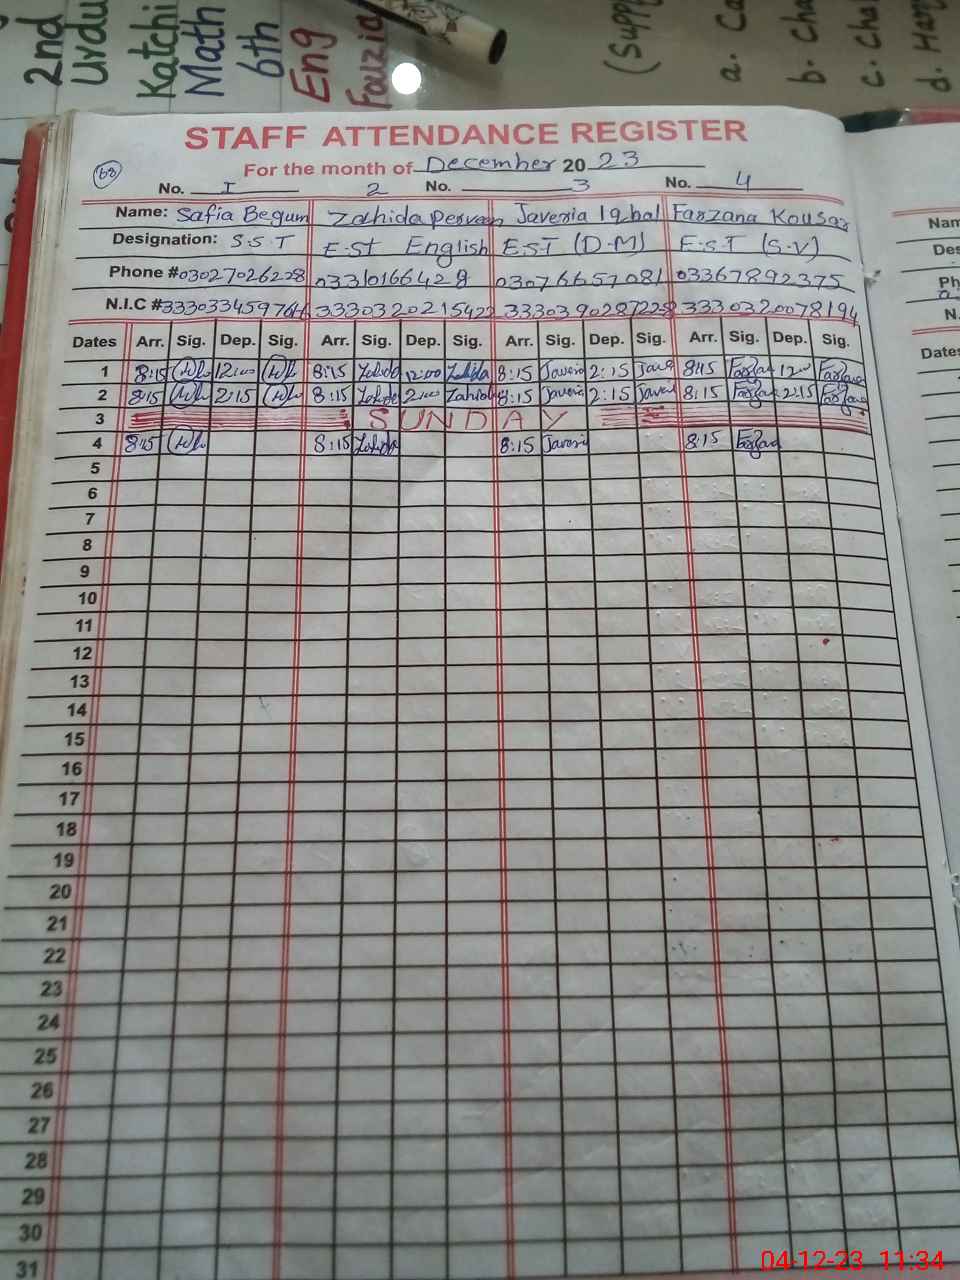 2nd
Urdu
Katchi
Math
6th
Eng
Fauzia
(Supp
a. Ca
b. Cha
c. Cha
d. Han
STAFF ATTENDANCE REGISTER
68
For the month of December 20 23
No. I 2 No. 3 No. 4
Name: Safia Begum Zahida Perveen Javeria Iqbal Farzana Kousar
Designation: S.S.T E.St English E.S.T (D-M) E.S.T (S.V)
Phone # 03027026228 03310166428 03076657081 03367892375
N.I.C # 3330320215422 3330390287228 3330320078194
Dates Arr. Sig. Dep. Sig. Arr. Sig. Dep. Sig. Arr. Sig. Dep. Sig. Arr. Sig. Dep. Sig.
1 8:15 12:00 8:15 Zahida 12:00 Zahida 8:15 Javeria 2:15 Jave 8:15 Farzan 12:00 Farzana
2 8:15 2:15 8:15 Zahida 2:00 Zahida 8:15 Javeria 2:15 Javeri 8:15 Farzan 2:15 Farzana
3 SUNDAY
4 8:15 8:15 Zahida 8:15 Javeri 8:15 Farzan
5
6
7
8
9
10
11
12
13
14
15
16
17
18
19
20
21
22
23
24
25
26
27
28
29
30
31
Nam
Des
Ph
N.
Dates
04-12-23 11:34